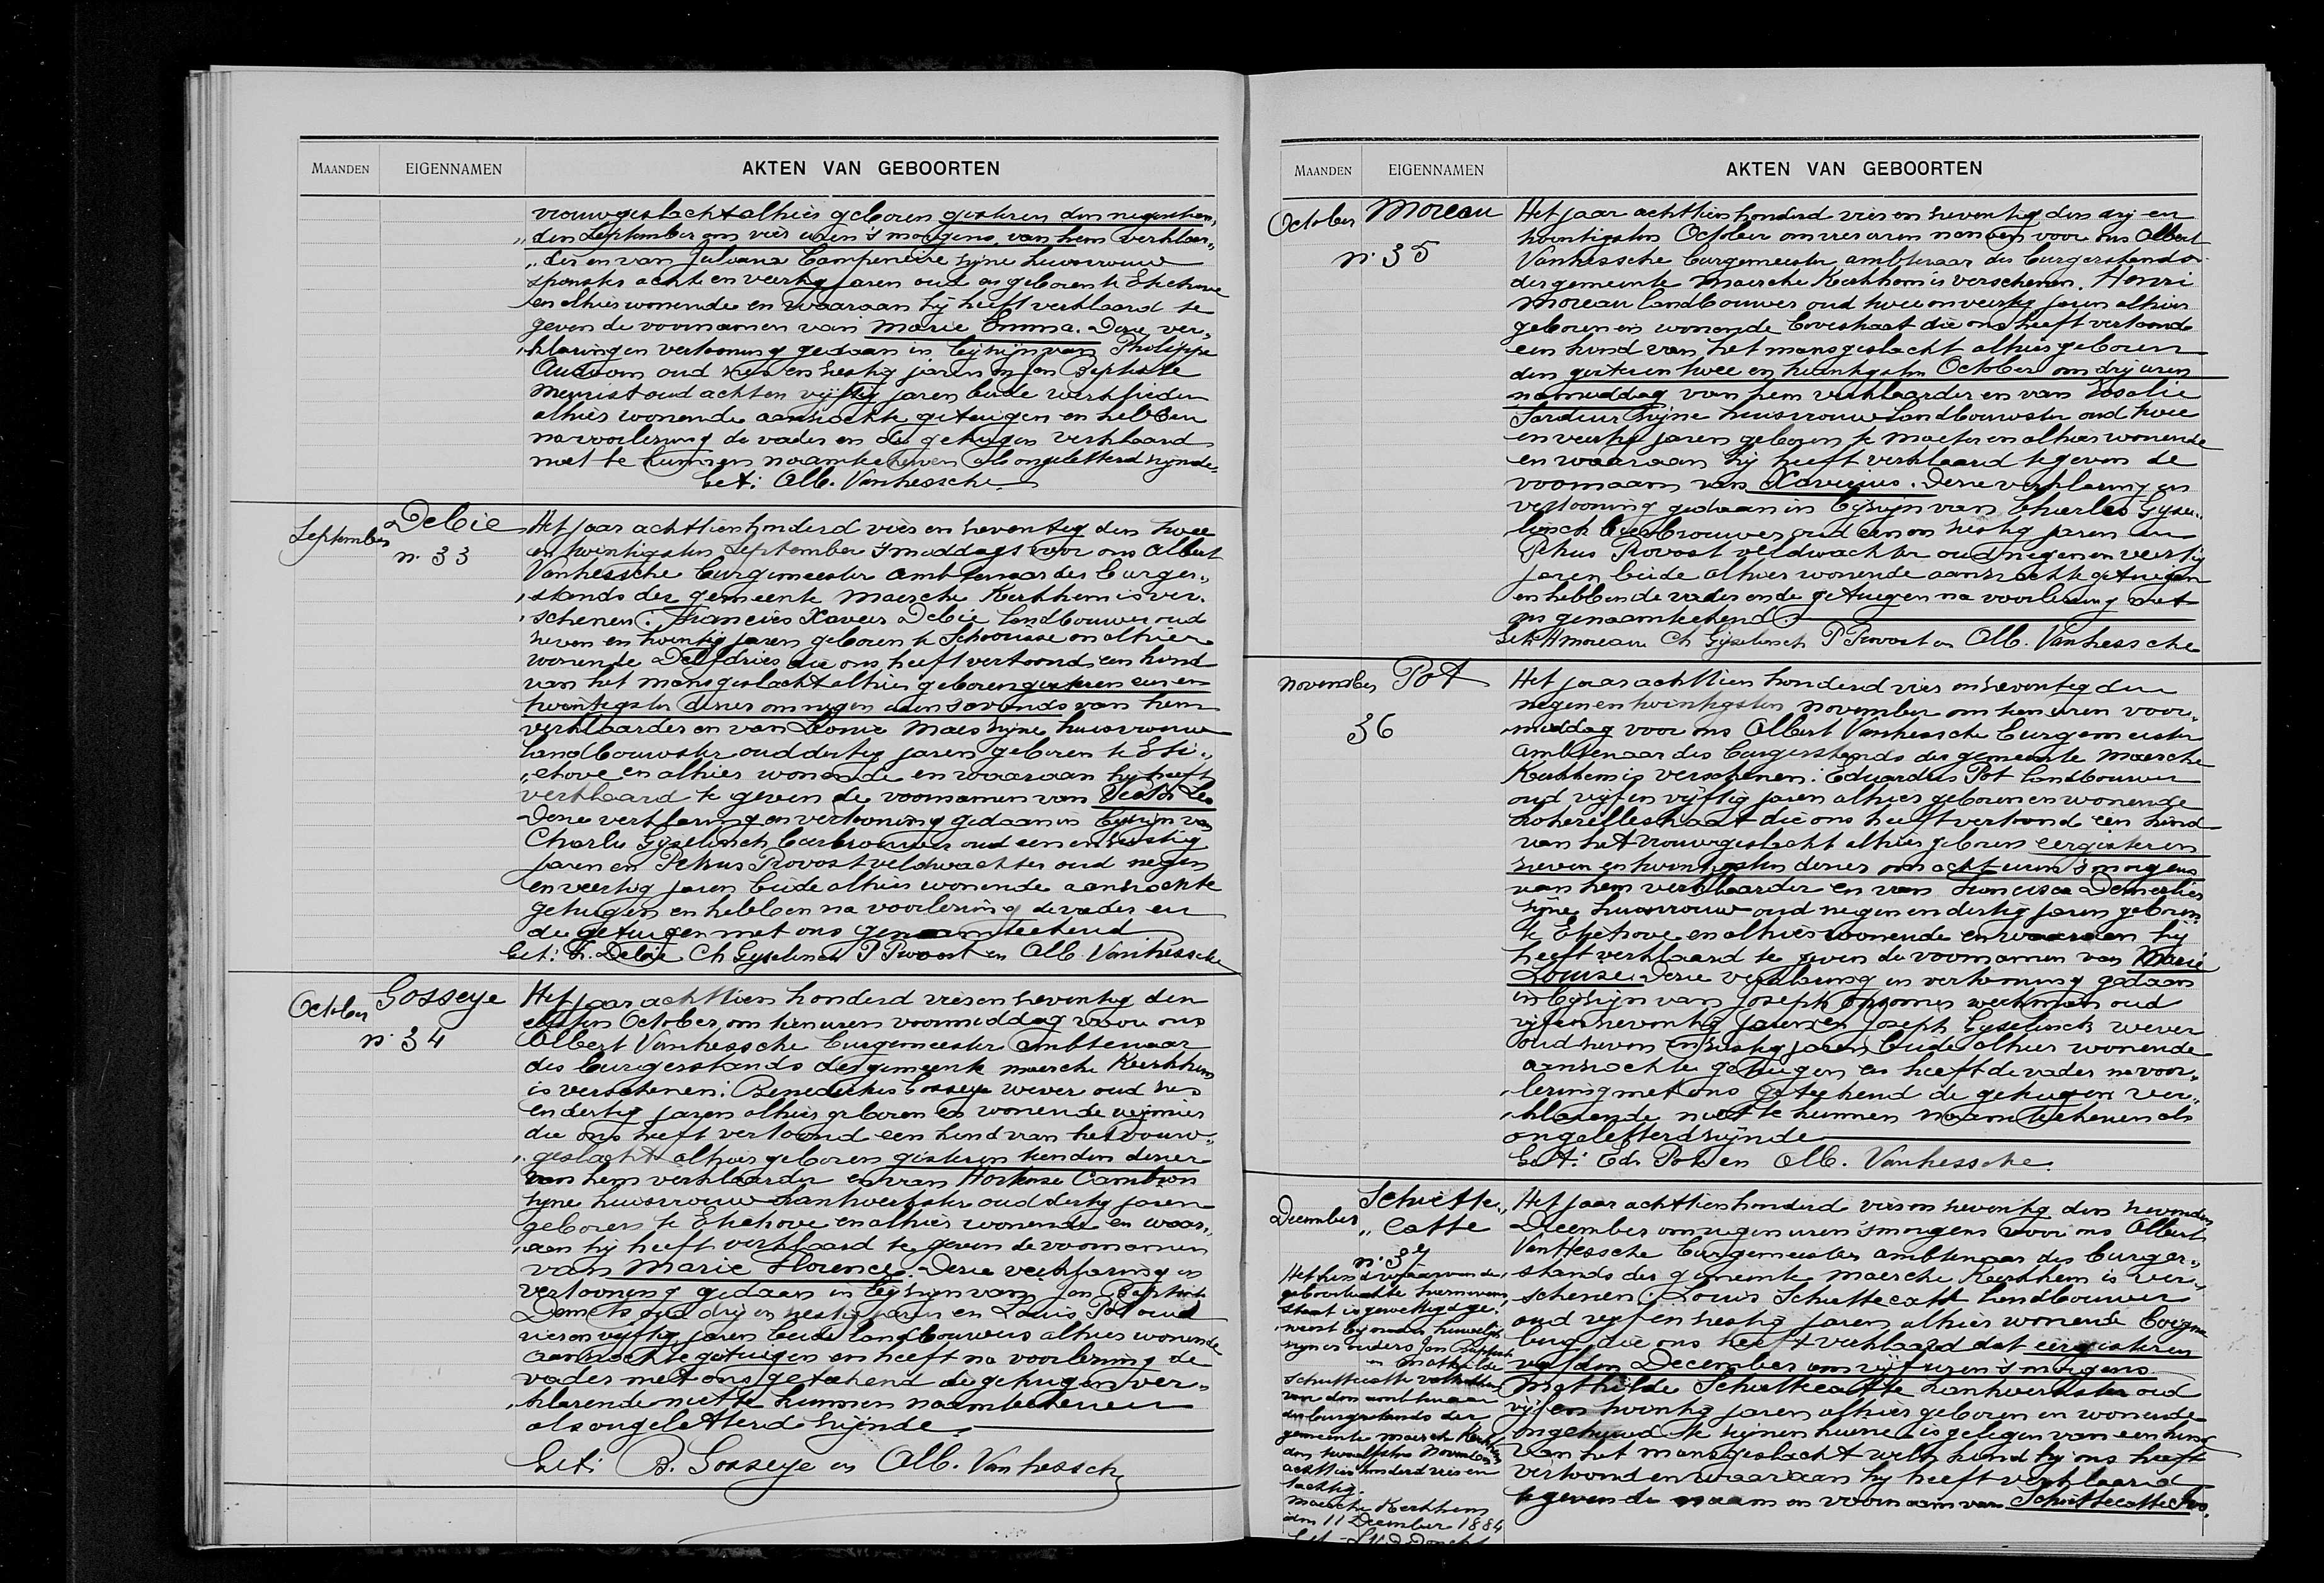 MAANDEN EIGENNAMEN AKTEN VAN GEBOORTEN
vrouwgeslacht alhier geboren gisteren den negentien„
„den September om vier uren 's morgens, van hem verklaar„
„der en van Juliana Campeneire zijne huisvrouw
spinster acht en veertig jaren oud en geboren te Etichove
en alhier wonende en waaraan hij heeft verklaard te
geven de voornamen van Marie Emma. Deze ver„
„klaring en vertooning gedaan in bijzijn van Philippe
oud zes en zestig jaren en Jan Baptiste
Meurist oud acht en vijftig jaren beide werklieden
alhier wonende aanzochte getuigen en hebben
na voorlezing de vader en de getuigen verklaard
niet te kunnen naamteekenen als ongeletterd zijnde.
Get: Alb. Vanhessche
September Debie
n. 33
Het jaar achttien honderd vier en zeventig den twee
en twintigsten September 's middags voor ons Albert
Vanhessche burgemeester ambtenaar des burger„
„stands der gemeente Maercke Kerkhem is ver„
„schenen: Francies Xavier Debie landbouwer oud
zeven en twintig jaren geboren te Schoorisse en alhier
wonende Delfdries die ons heeft vertoond een kind
van het mansgeslacht alhier geboren gisteren een en
twintigsten dezer om negen uren savonds van hem
verklaarder en van Leonie Maes zijne huisvrouw
landbouwster oud dertig jaren geboren te Eti„
„chove en alhier wonende en waaraan hij heeft
verklaard te geven de voornamen van Victor Leo
Deze verklaring en vertooning gedaan in bijzijn van
Charles Gyselinck bierbrouwer oud een en zestig
jaren en Petrus Provost veldwachter oud negen
en veertig jaren beide alhier wonende aanzochte
getuigen en hebben na voorlezing de vader en
de getuigen met ons genaamteekend
Get: F. Debie Ch Gyselinck P Provost en Alb. Vanhessche
October Gosseye
n. 34
Het jaar achttien honderd vier en zeventig den
elfsten October om tien uren voormiddag voor ons
Albert Vanhessche burgemeester ambtenaar
des burgerstands der gemeente Maercke Kerkhem
is verschenen: Benedictus Gosseye wever oud zes
en dertig jaren alhier geboren en wonende
die ons heeft vertoond een kind van het vrouw„
„geslacht alhier geboren gisteren tienden dezer
van hem verklaarder en van Hortense Cambron
zijne huisvrouw kantwerkster oud dertig jaren
geboren te Etichove en alhier wonende en waar„
„aan hij heeft verklaard te geven de voornamen
van Marie Florence. Deze verklaring en
vertooning gedaan in bijzijn van Jan Baptiste
Demets oud drij en zestig jaren en Louis Pot oud
vier en vijftig jaren beide landbouwers alhier wonende
aanzochte getuigen en heeft na voorlezing de
vader met ons geteekend de getuigen ver„
„klarende niet te kunnen naamteekenen
als ongeletterd zijnde.
Get: B. Gosseye en Alb. Vanhessche
MAANDEN EIGENNAMEN AKTEN VAN GEBOORTEN
October Moreau
n. 35
Het jaar achttien honderd vier en zeventig den drij en
twintigsten October om vier uren namiddag voor ons Albert
Vanhessche burgemeester ambtenaar des burgerstands
der gemeente Maercke Kerkhem is verschenen. Henri
Moreau landbouwer oud twee en veertig jaren alhier
geboren en wonende Bovenstraat die ons heeft vertoond
een kind van het mansgeslacht alhier geboren
den gisteren twee en twintigsten October om drij uren
namiddag van hem verklaarder en van Rosalie
zijne huisvrouw landbouwster oud twee
en veertig jaren geboren te Maeter en alhier wonende
en waaraan hij heeft verklaard te geven de
voornaam van Xaverius. Deze verklaring en
vertooning gedaan in bijzijn van Charles Gyse„
linck bierbrouwer oud een en zestig jaren en
Petrus Provost veldwachter oud negen en veertig
jaren beide alhier wonende aanzochte getuigen
en hebben de vader en de getuigen na voorlezing met
ons genaamteekend.
Get: H Moreau Ch Gyselinck P Provost en Alb. Vanhessche
November Pot
36
Het jaar achttien honderd vier en zeventig den
negen en twintigsten november om tien uren voor„
middag voor ons Albert Vanhessche burgemeester
ambtenaar des burgerstands der gemeente Maercke
Kerkhem is verschenen: Eduardus Pot landbouwer
oud vijf en vijftig jaren alhier geboren en wonende
die ons heeft vertoond een kind
van het vrouwgeslacht alhier geboren eergisteren
zeven en twintigsten dezer om acht uren 's morgens
van hem verklaarder en van Francisca
zijne huisvrouw oud negen en dertig jaren geboren
te Etichove en alhier wonende en waaraan hij
heeft verklaard te geven de voornamen van Marie
Louise. Deze verklaring en vertooning gedaan
in bijzijn van Joseph Opsomer werkman oud
vijf en zeventig jaren en Joseph Gyselinck wever
oud zeven en zestig jaren beide alhier wonende
aanzochte getuigen en heeft de vader na voor„
„lezing met ons geteekend de getuigen ver„
„klarende niet te kunnen naamteekenen als
ongeletterd zijnde
Get: Ed. Pot en Alb. Vanhessche.
December Schutte„
„catte
n. 37
Het jaar achttien honderd vier en zeventig den zevenden
December om negen uren 'smorgens voor ons Albert
VanHessche burgemeester ambtenaar des burger„
stands der gemeente Maercke Kerkhem is ver„
schenen: Louis Schuttecatte landbouwer
oud vijf en zestig jaren alhier wonende
die ons heeft verklaard dat eergisteren
vijfden December om vijf uren 's morgens
Mathilde Schuttecatte kantwerkster oud
vijf en twintig jaren alhier geboren en wonende
ongehuwd te zijnen huize is gelegen van een kind
van het mansgeslacht welk kind hij ons heeft
vertoond en waaraan hij heeft verklaard
te geven de naam en voornaam van Schuttecatte
Het kind waarvan de
geboorteakte hiernevens
staat is gewettigd ge„
weest bij het huwelijk
zijner ouders Jan Baptiste
en Mathilde
Schuttecatte voltrokken
voor den ambtenaar
des burgerstands der
gemeente Maercke Kerkhem
den twaalfsten November
achttien honderd vier en
tachtig.
Maercke Kerkhem
den 11 December 1884